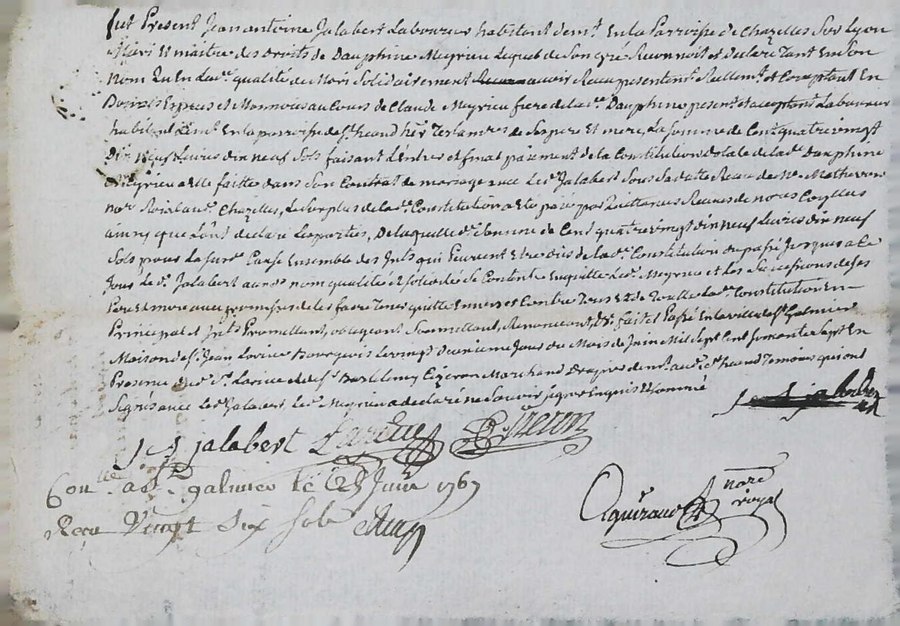 fut Present Jean antoine Jalabert Laboureur habitant de mt. En la Parroisse de Chazelles Sur Lyon
Mari Et maitre des droits de Dauphine Meyrieu Lequel de Son gré Reconnoit et declare Tant En Son
nom Qu En lade. qualité de Mari Solidairement avoir Receu presentemt. Reellemt. et Comptant En
Doubles Especes et Monnoies au Cours de Claude Meyrieu frere de lade. Dauphine present et acceptant Laboureur
habitant de mt. En la parroisse de St. heand her. Testamre. de Ses pere Et mere, La Somme de Cent quatre vingt
Dix Neuf Livres dix neuf Sols faisant L'entier et final paiement de la Constitution dotale de lade. Dauphine
Meyrieu a elle faitte dans Son Contrat de mariage avec Led. Jalabert Sous Sa datte Receu de Me. Mathevon
nore. Roial aud. Chazelles, Le Surplus de lade. Constitution a Eté paié par Quittances Receues de nous
ainsy que l'ont declaré Les parties, De laquelle de. Somme de Cent quatre vingt dix neuf Livres dix neuf
Sols pour Les Causes Ensemble des Ints. qui peuvent Etre dus de lade. Constitution du passé Jusques a Ce
Jour Led. Jalabert aux nom qualité et Solidité Se Contente En quitte Led. Meyrieu et les Successions de Ses
Pere et mere avec promesse de les faire Tenir quitte Envers et Contre Tous Et de Toutte lade. Constitution En
Principal et Ints. Promettant, obligeant Soumettant, Renonceant, &c. fait et Passé En la ville de St. Galmier
Maison de Sr. Jean Larive Bourgeois Le vingt deuxieme Jour du Mois de Juin Mil Sept Cent Soixante Sept En
Presence dud. Sr. Larive et de Sr. Barthelemy Cizeron Marchand aud. St. heand Temoins qui ont
Signés avec Led. Jalabert Led. Meyrieu a declaré ne Scavoir Signer Enquis et Sommé
J A Jalabert Larive Cizeron
Conllé. a St. galmier le 23 Juin 1767
Reçu Vingt Six Sols
nore. royal